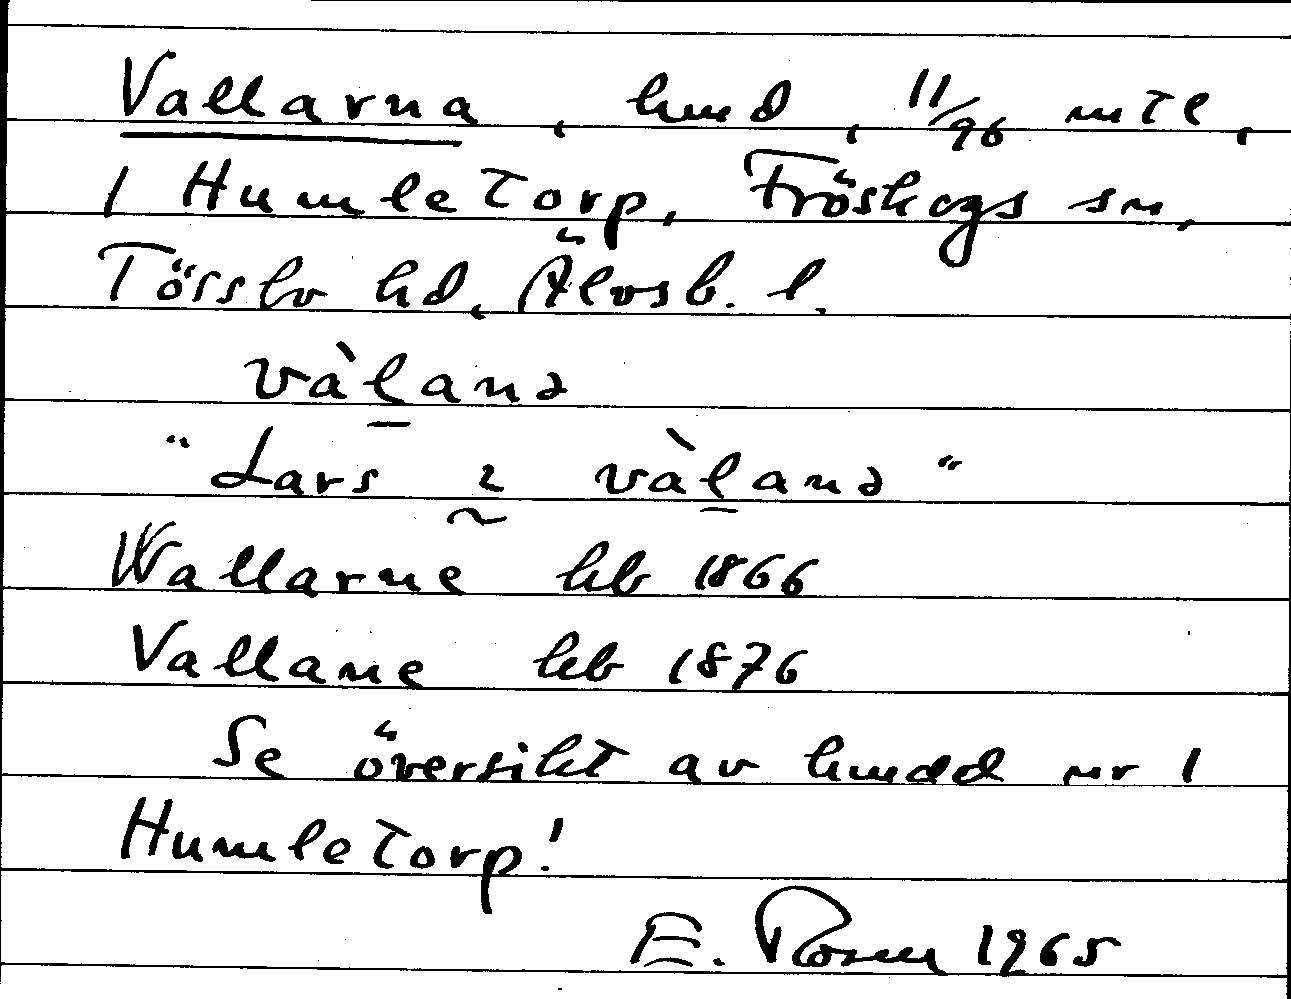 Vallarna, hmd, 11/96 mtl,
1 Humletorp, Fröskogs sn,
Tössbo hd, Älvsb. l.
vàl̠anə
"Lars ɩ̰ vàl̠anə"
Wallarne hb 1866
Vallane hb 1876
Se översikt av hmdd nr 1
Humletorp!
E. Rosén 1965